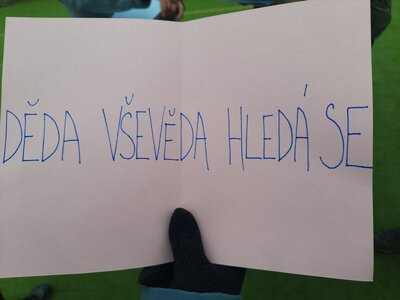 DĚDA VŠEVĚDA HLEDÁ SE